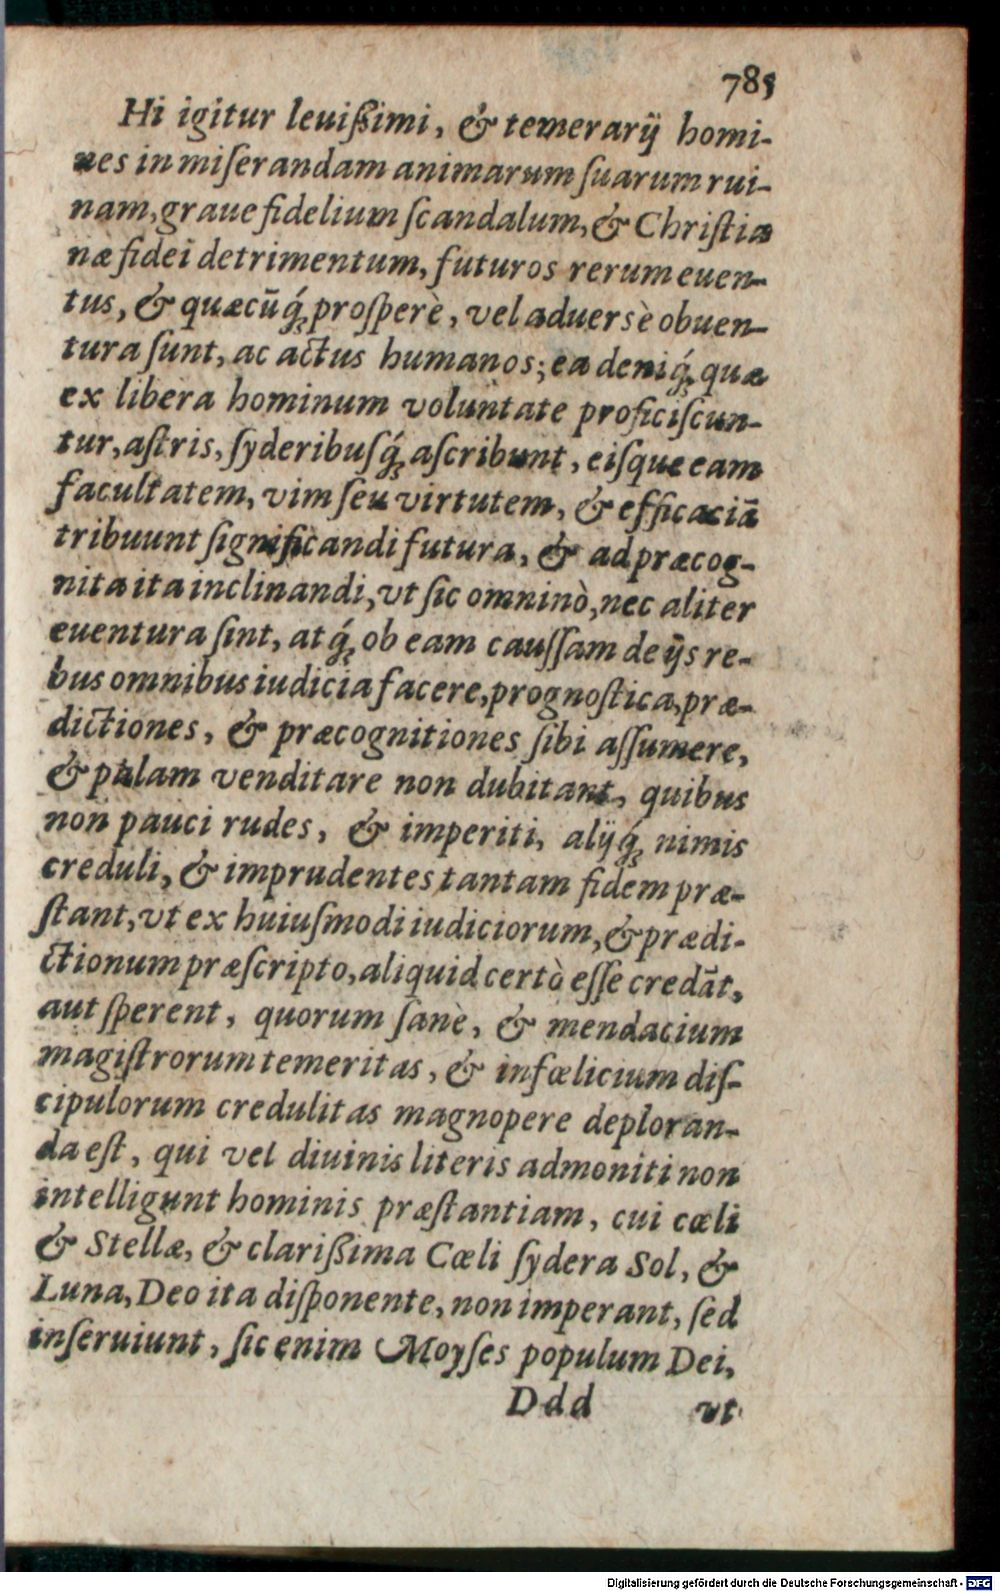 785
Hi igitur leuißimi, & temerarij homi-
nes in miſerandam animarum ſuarum rui-
nam, graue fidelium ſcandalum, & Chriſtia
næ fidei detrimentum, futuros rerum euen-
tus, & quæcūq́; proſperè, vel aduersè obuen-
tura ſunt, ac actus humanos; ea deniq́; quæ
ex libera hominum voluntate proficiſcun-
tur, aſtris, ſyderibuſq́; aſcribunt, eiſque eam
facultatem, vim ſeu virtutem, & efficaciā
tribuunt ſignificandi futura, & ad præcog-
nita ita inclinandi, vt ſic omninò, nec aliter
euentura ſint, atq́; ob eam cauſſam de ijs re-
bus omnibus iudicia facere, prognoſtica, præ-
dictiones, & præcognitiones ſibi aſſumere,
& palam venditare non dubitant, quibus
non pauci rudes, & imperiti, alijq́; nimis
creduli, & imprudentes tantam fidem præ-
ſtant, vt ex huiuſmodi iudiciorum, & prædi-
ctionum præſcripto, aliquid certò eſſe credāt,
aut ſperent, quorum ſanè, & mendacium
magiſtrorum temeritas, & infœlicium diſ-
cipulorum credulitas magnopere deploran-
da eſt, qui vel diuinis literis admoniti non
intelligunt hominis præſtantiam, cui cœli
& Stellæ, & clarißima Cœli ſydera Sol, &
Luna, Deo ita diſponente, non imperant, ſed
inſeruiunt, ſic enim Moyſes populum Dei,
Ddd vt
Digitalisierung gefördert durch die Deutsche Forschungsgemeinschaft - DFG